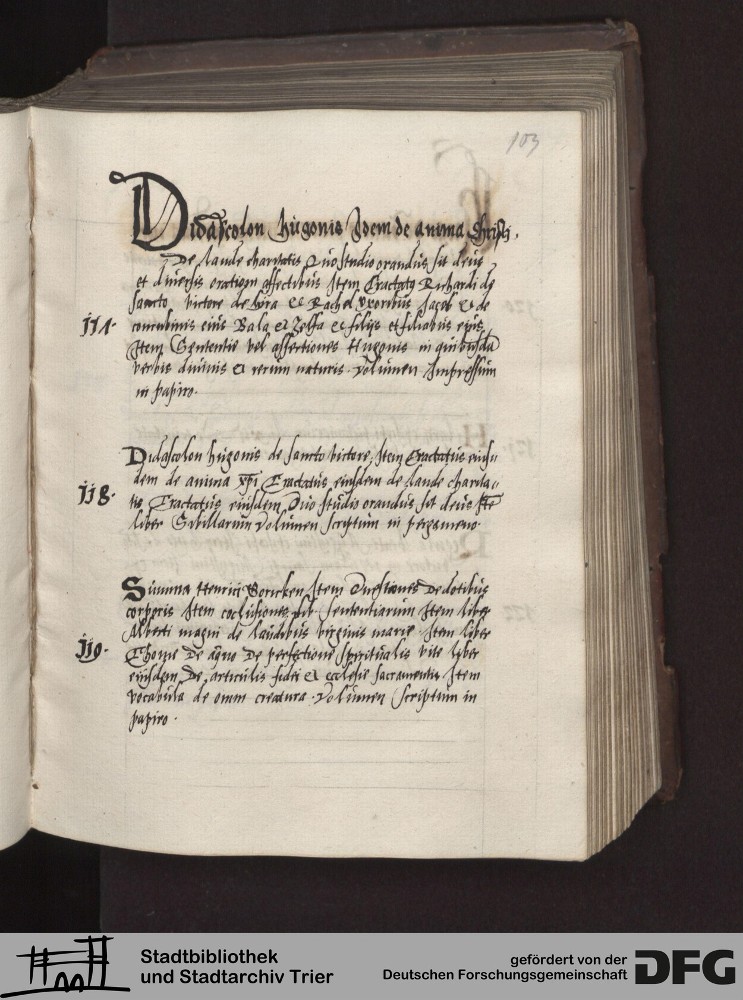 103
Didascolon hugonis Idem de anima Christi.
De laude charitatis Quo studio orandus sit deus
et diversis orationū affectibus Item Tractatus Richardi de
sancto victore de lyra et Rachel uxoribus Jacob et de
117. concubinis eius Bala et Zelfa et filijs et filiabus eius
Item Sententie vel assertiones Hugonis in quibusdā
verbis divinis et rerum naturis. Volumen Impressum
in papiro.
Didascolon hugonis de sancto victore, Item Tractatus eius-
dem de anima xpi Tractatus eiusdem de laude charita-
118. tis Tractatus eiusdem Quo studio orandus sit deus Itē
liber Sibillarum Volumen scriptum in pergameno.
Summa Henrici Item Questiones De dotibus
corporis Item coclusiones sententiarum Item liber
Alberti magni de laudibus virginis marie Item liber
119. Thome De aqno De perfectione spiritualis vite liber
eiusdem De articulis fidei et ecclesie sacramentis Item
vocabula de omni creatura. Volumen scriptum in
papiro.
Stadtbibliothek
und Stadtarchiv Trier
gefördert von der
Deutschen Forschungsgemeinschaft
DFG